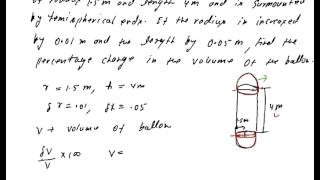 of radius 1.5 m and length 4m and is surmounted
by hemispherical ends. If the radius is increased
by 0.01 m and the length by 0.05 m, find the
percentage change in the volume of the ballon.
r = 1.5 m, h = 4m
δr = .01, δh = .05
V → volume of ballon
δV/V × 100 V =
4m
1.5m